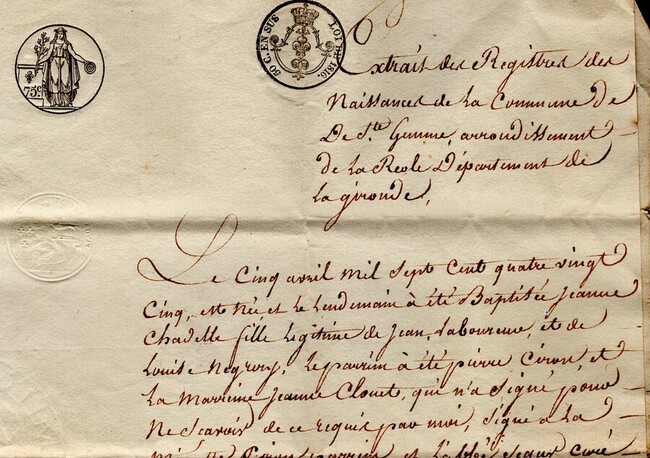 75c
60 C. EN SUS
LOI DE 1816.
Extrait des Registres des
Naissances de la Commune de
De Ste Gemme, arrondissement
de la Reole Département de
la gironde,
Le Cinq avril mil Sept Cent quatre vingt
Cinq, est Née et le lendemain à été Baptisée Jeanne
Chadelle fille legitime de Jean, laboureur, et de
Louise Negrory; le parrin à été pierre Ciron et
la Marrine Jeanne Clouet, qui n'a Signé pour
Ne Scavoir de ce requis par moi, Signé a la
parrin et l'abbé Seaux curé